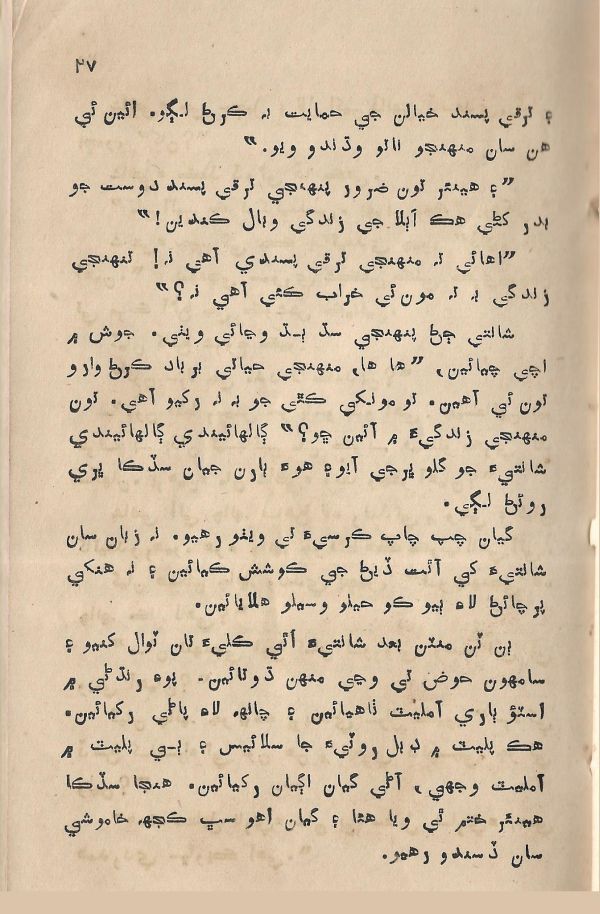 ۲۷
۽ ترقي پسند خيالن جي حمايت ۾ ڪرڻ لڳو. ائين ئي
هن سان منهنجو ناتو وڌندو ويو.”
”۽ هينئر تون ضرور پنهنجي ترقي پسند دوست جو
بدر کڻي هڪ اَٻلا جي زندگي وبال ڪندين!”
”اهائي ته منهنجي ترقي پسندي آهي نه! تنهنجي
زندگي به ته مون ئي خراب ڪئي آهي نه؟”
شانتي ڄڻ پنهنجي سڌ ٻڌ وڃائي ويٺي. جوش ۾
اچي چيائين، ”ها ها، منهنجي حياتي برباد ڪرڻ وارو
تون ئي آهين. تو مونکي ڪٿي جو به نه رکيو آهي. تون
منهنجي زندگيءَ ۾ آئين ڇو؟” ڳالهائيندي ڳالهائيندي
شانتيءَ جو گلو ڀرجي آيو ۽ هوءَ ٻارن جيان سڏڪا ڀري
روئڻ لڳي.
گيان چپ چاپ ڪرسيءَ تي ويٺو رهيو. نه زبان سان
شانتيءَ کي آٿت ڏيڻ جي ڪوشش ڪيائين ۽ نه هنکي
پرچائڻ لاءِ ٻيو ڪو حيلو وسيلو هلايائين.
ٻن ٽن منٽن بعد شانتيءَ اُٿي ڪليءَ تان ٽوال کنيو ۽
سامهون حوض تي وڃي منهن ڌوتائين. پوءِ رنڌڻي ۾
اسٽؤ ٻاري آمليٽ ٺاهيائين ۽ چانهه لاءِ پاڻي رکيائين.
هڪ پليٽ ۾ ڊبل روٽيءَ جا سلائيس ۽ ٻي پليٽ ۾
آمليٽ وجهي، آڻي گيان اڳيان رکيائين. هنجا سڏڪا
هينئر ختم ٿي ويا هئا ۽ گيان اهو سڀ ڪجهه خاموشي
سان ڏسندو رهيو.